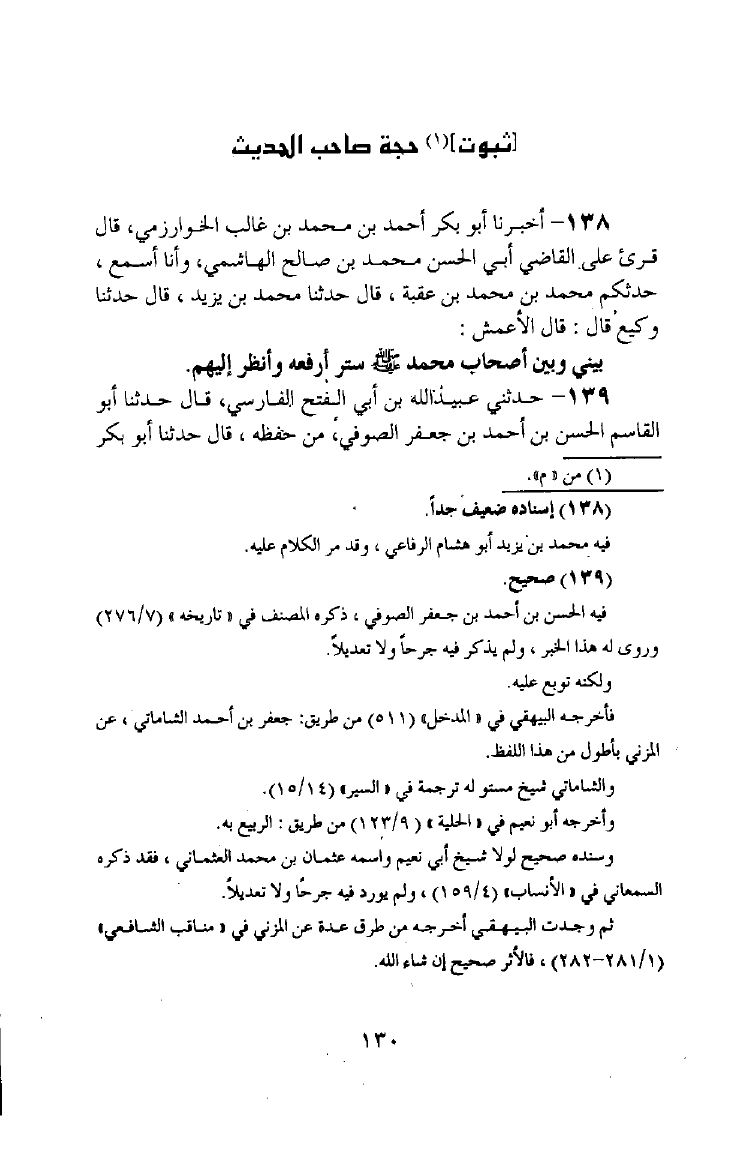 [ثبوت](١) حجة صاحب الحديث
١٣٨- أخبرنا أبو بكر أحمد بن محمد بن غالب الخوارزمي، قال
قرئ على القاضي أبي الحسن محمد بن صالح الهاشمي، وأنا أسمع ،
حدثكم محمد بن محمد بن عقبة ، قال حدثنا محمد بن يزيد ، قال حدثنا
وكيع قال : قال الأعمش :
بيني وبين أصحاب محمد ﷺ ستر أرفعه وأنظر إليهم.
١٣٩- حدثني عبيدالله بن أبي الفتح الفارسي، قال حدثنا أبو
القاسم الحسن بن أحمد بن جعفر الصوفي، من حفظه ، قال حدثنا أبو بكر
(١) من « م».
(١٣٨) إسناده ضعيف جداً.
فيه محمد بن يزيد أبو هشام الرفاعي ، وقد مر الكلام عليه.
(١٣٩) صحيح.
فيه الحسن بن أحمد بن جعفر الصوفي ، ذكره المصنف في « تاريخه » (٢٧٦/٧)
وروى له هذا الخبر ، ولم يذكر فيه جرحاً ولا تعديلاً.
ولكنه توبع عليه.
فأخرجه البيهقي في « المدخل» (٥١١) من طريق: جعفر بن أحمد الشاماتي ، عن
المزني بأطول من هذا اللفظ.
والشاماتي شيخ مستو له ترجمة في « السير» (١٥/١٤).
وأخرجه أبو نعيم في « الحلية » ( ١٢٣/٩) من طريق : الربيع به.
وسنده صحيح لولا شيخ أبي نعيم واسمه عثمان بن محمد العثماني ، فقد ذكره
السمعاني في « الأنساب» (١٥٩/٤) ، ولم يورد فيه جرحًا ولا تعديلاً.
ثم وجدت البيهقي أخرجه من طرق عدة عن المزني في « مناقب الشافعي»
(٢٨١/١-٢٨٢) ، فالأثر صحيح إن شاء الله.
١٣٠